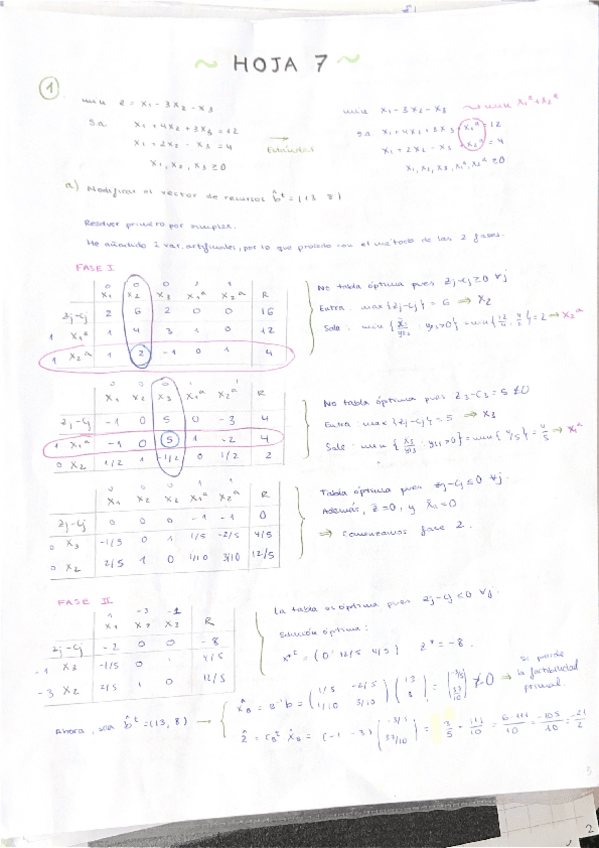 ~ HOJA 7 ~
①
min z = x₁ - 3x₂ - x₃
sa x₁ + 4x₂ + 3x₃ = 12
x₁ + 2x₂ - x₃ = 4
x₁, x₂, x₃ ≥ 0
→ Estándar
min x₁ - 3x₂ - x₃ → min x₁ᵃ + x₂ᵃ
sa x₁ + 4x₂ + 3x₃ + x₁ᵃ = 12
x₁ + 2x₂ - x₃ + x₂ᵃ = 4
x₁, x₂, x₃, x₁ᵃ, x₂ᵃ ≥ 0
a) Modificar el vector de recursos b̂ᵗ = (13 8)
Resolver primero por simplex.
He añadido 2 var. artificiales, por lo que procedo con el método de las 2 fases.
FASE I
0 0 0 1 1
x₁ x₂ x₃ x₁ᵃ x₂ᵃ R
zj-cj 2 6 2 0 0 16
1 x₁ᵃ 1 4 3 1 0 12
1 x₂ᵃ 1 2 -1 0 1 4
No tabla óptima pues zj-cj ≥ 0 ∀j
Entra: max {zj-cj} = 6 ⇒ x₂
x₁ x₂ x₃ x₁ᵃ x₂ᵃ R
zj-cj -1 0 5 0 -3 4
1 x₁ᵃ -1 0 5 1 -2 4
0 x₂ 1/2 1 -1/2 0 1/2 2
No tabla óptima pues z₃-c₃ = 5 ≰ 0
Entra: max {zj-cj} = 5 ⇒ x₃
x₁ x₂ x₃ x₁ᵃ x₂ᵃ R
zj-cj 0 0 0 -1 -1 0
0 x₃ -1/5 0 1 1/5 -2/5 4/5
0 x₂ 2/5 1 0 1/10 3/10 12/5
Tabla óptima pues zj-cj ≤ 0 ∀j.
Además, z̄ = 0, y
⇒ Comenzamos fase 2.
FASE II
1 -3 -1
x₁ x₂ x₃ R
zj-cj -2 0 0 -8
-1 x₃ -1/5 0 1 4/5
-3 x₂ 2/5 1 0 12/5
La tabla es óptima pues zj-cj < 0 ∀j.
Solución óptima:
x*ᵗ = (0 12/5 4/5) z* = -8.
Ahora, sea b̂ᵗ = (13, 8) →
x̂_B = B⁻¹b = (1/5 -2/5 1/10 3/10) (13 8) = (-3/5 37/10) ≱ 0 ⇒ Se pierde
la factibilidad
primal.
ẑ = c_Bᵗ x̂_B = (-1 -3) (-3/5 37/10) = 3/5 - 111/10 = 6-111/10 = -105/10 = -21/2
2